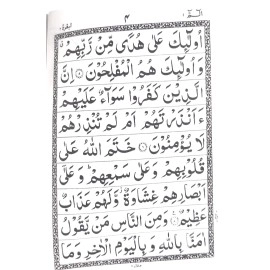 اُولٰٓئِكَ عَلٰى هُدًى مِّنْ رَّبِّهِمْ
وَاُولٰٓئِكَ هُمُ الْمُفْلِحُوْنَ ۝ اِنَّ
الَّذِيْنَ كَفَرُوْا سَوَآءٌ عَلَيْهِمْ
ءَاَنْذَرْتَهُمْ اَمْ لَمْ تُنْذِرْهُمْ
لَا يُؤْمِنُوْنَ ۝ خَتَمَ اللّٰهُ عَلٰى
قُلُوْبِهِمْ وَعَلٰى سَمْعِهِمْ ؕ وَعَلٰٓى
اَبْصَارِهِمْ غِشَاوَةٌ وَّلَهُمْ عَذَابٌ
عَظِيْمٌ ۝ وَمِنَ النَّاسِ مَنْ يَّقُوْلُ
اٰمَنَّا بِاللّٰهِ وَبِالْيَوْمِ الْاٰخِرِ وَمَا